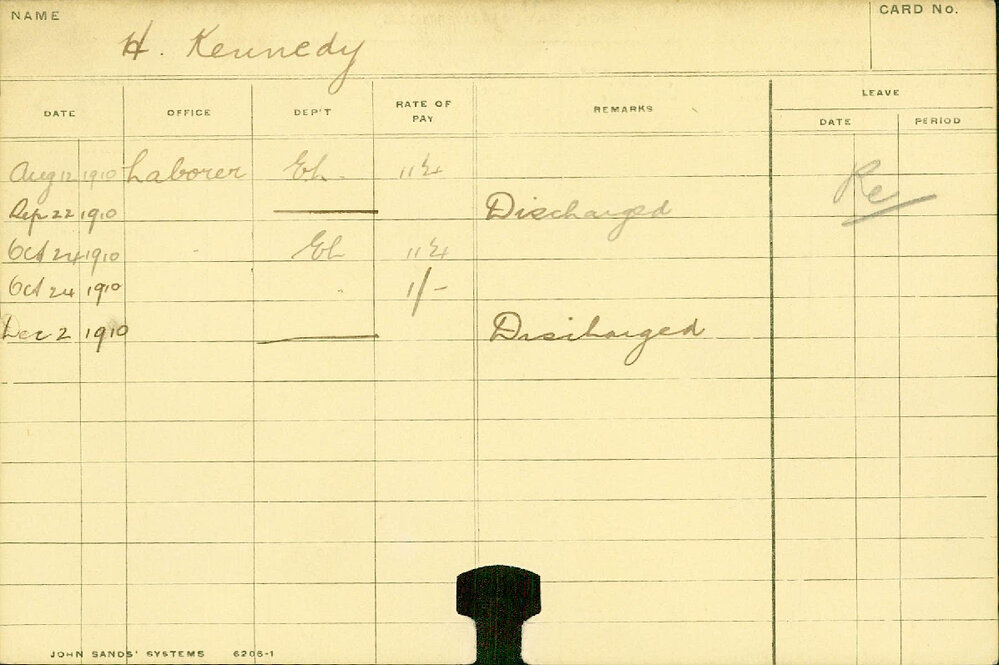 NAME
CARD No.
H. Kennedy
LEAVE
DATE OFFICE DEP'T RATE OF PAY REMARKS DATE PERIOD
Aug 12 1910 Laborer El. 11¼
Re
Sep 22 1910 Discharged
Oct 24 1910 El 11¼
Oct 24 1910 1/-
Dec 2 1910 Discharged
JOHN SANDS' SYSTEMS 6206-1